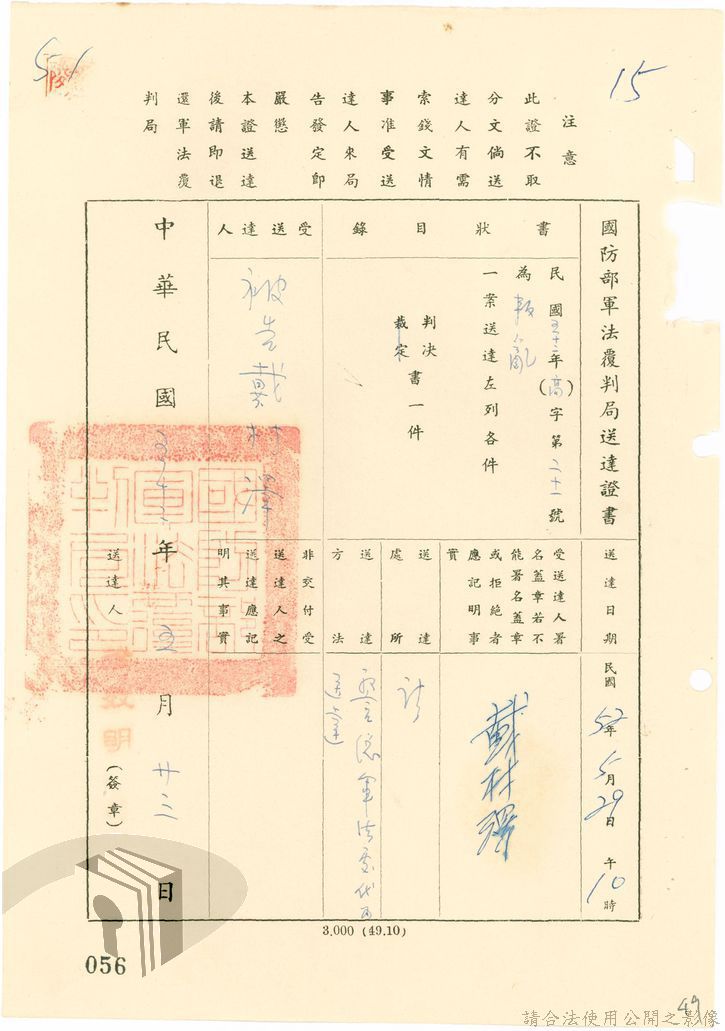 15
注意
此證不取
分文倘送
達人有需
索錢文情
事准受送
達人來局
告發定即
嚴懲
本證送達
後請即退
還軍法覆
判局
國防部軍法覆判局送達證書
送達日期
民國52年5月29日午10時
書狀目錄
民國五十二年(高)字第二十一號
為叛亂
一案送達左列各件
判決
裁定
書一件
受送達人署
名蓋章若不
能署名蓋章
或拒絕者
應記明事
實
戴村澤
送達處所
送達方法
送達
受送達人
被告戴村澤
非交付受
送達人之
送達應記
明其事實
中華民國五十二年五月廿三日
送達人
(簽章)
3,000 (49.10)
056
49
請合法使用公開之影像